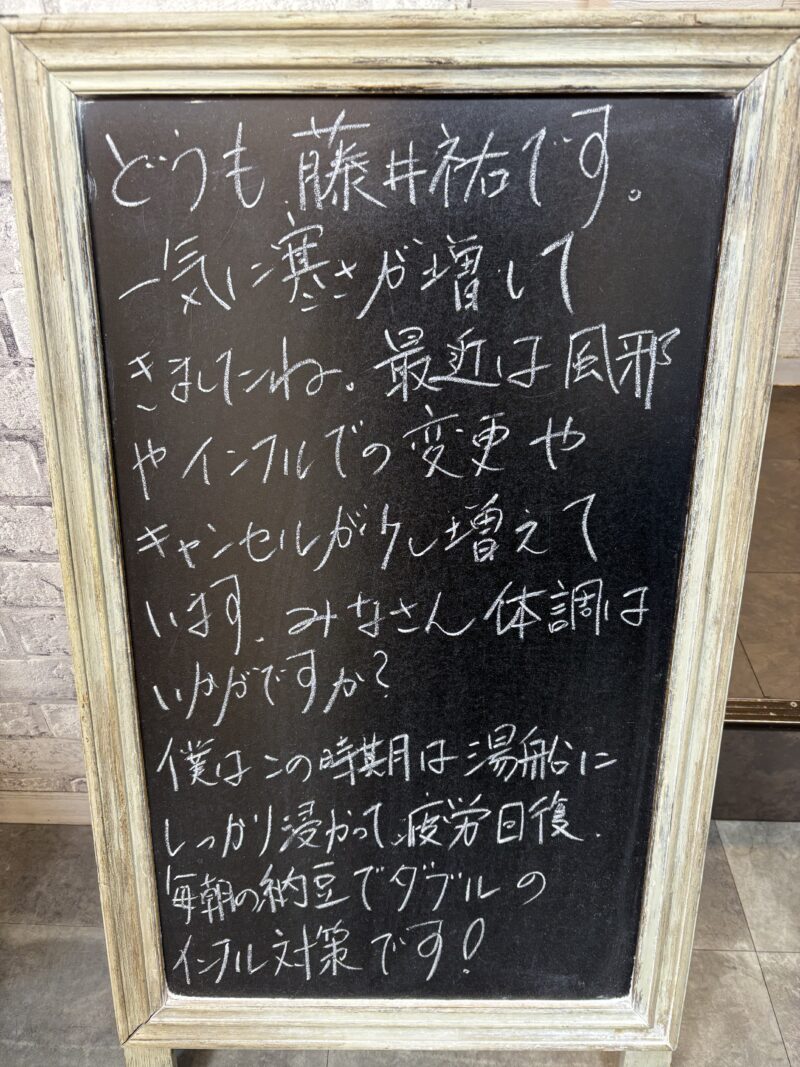 どうも藤井祐です。
一気に寒さが増して
きましたね。最近は風邪
やインフルでの変更や
キャンセルが少し増えて
います、みなさん体調は
いかがですか?
僕はこの時期は湯船に
しっかり浸かって疲労回復、
毎朝の納豆でダブルの
インフル対策です!